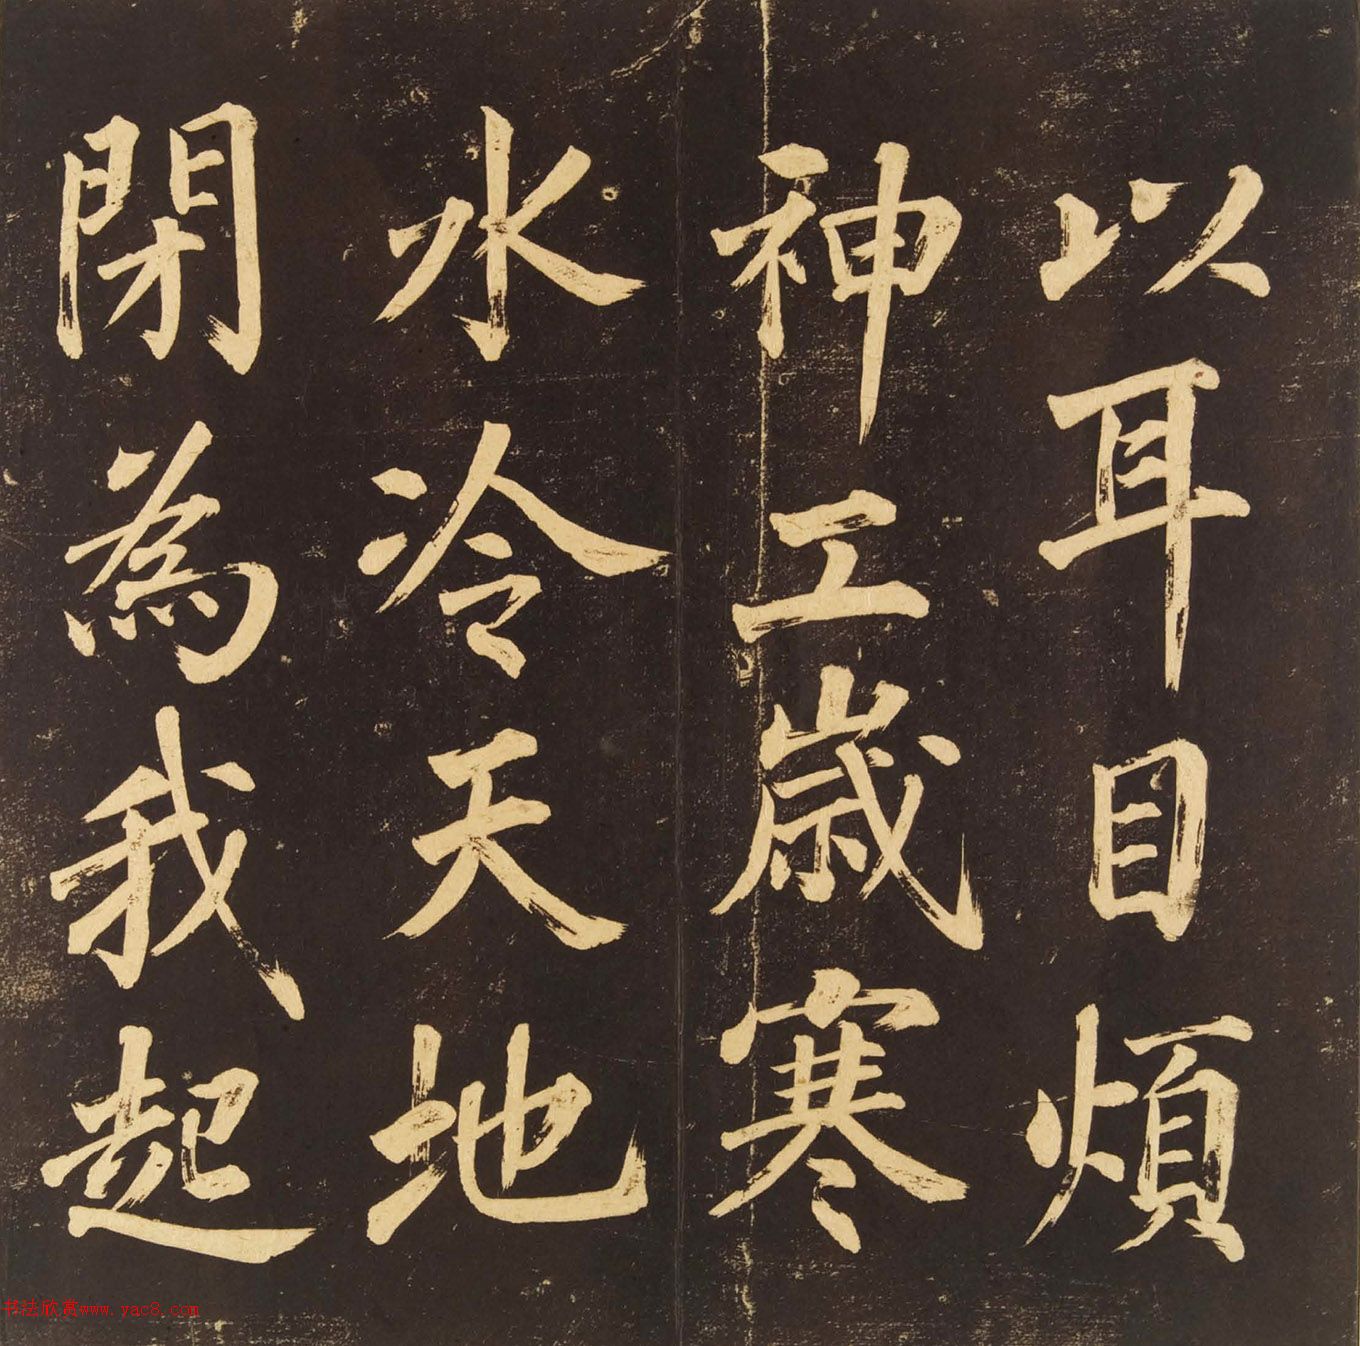 以耳目煩
神工歲寒
水冷天地
閉為我起
书法欣赏www.yac8.com